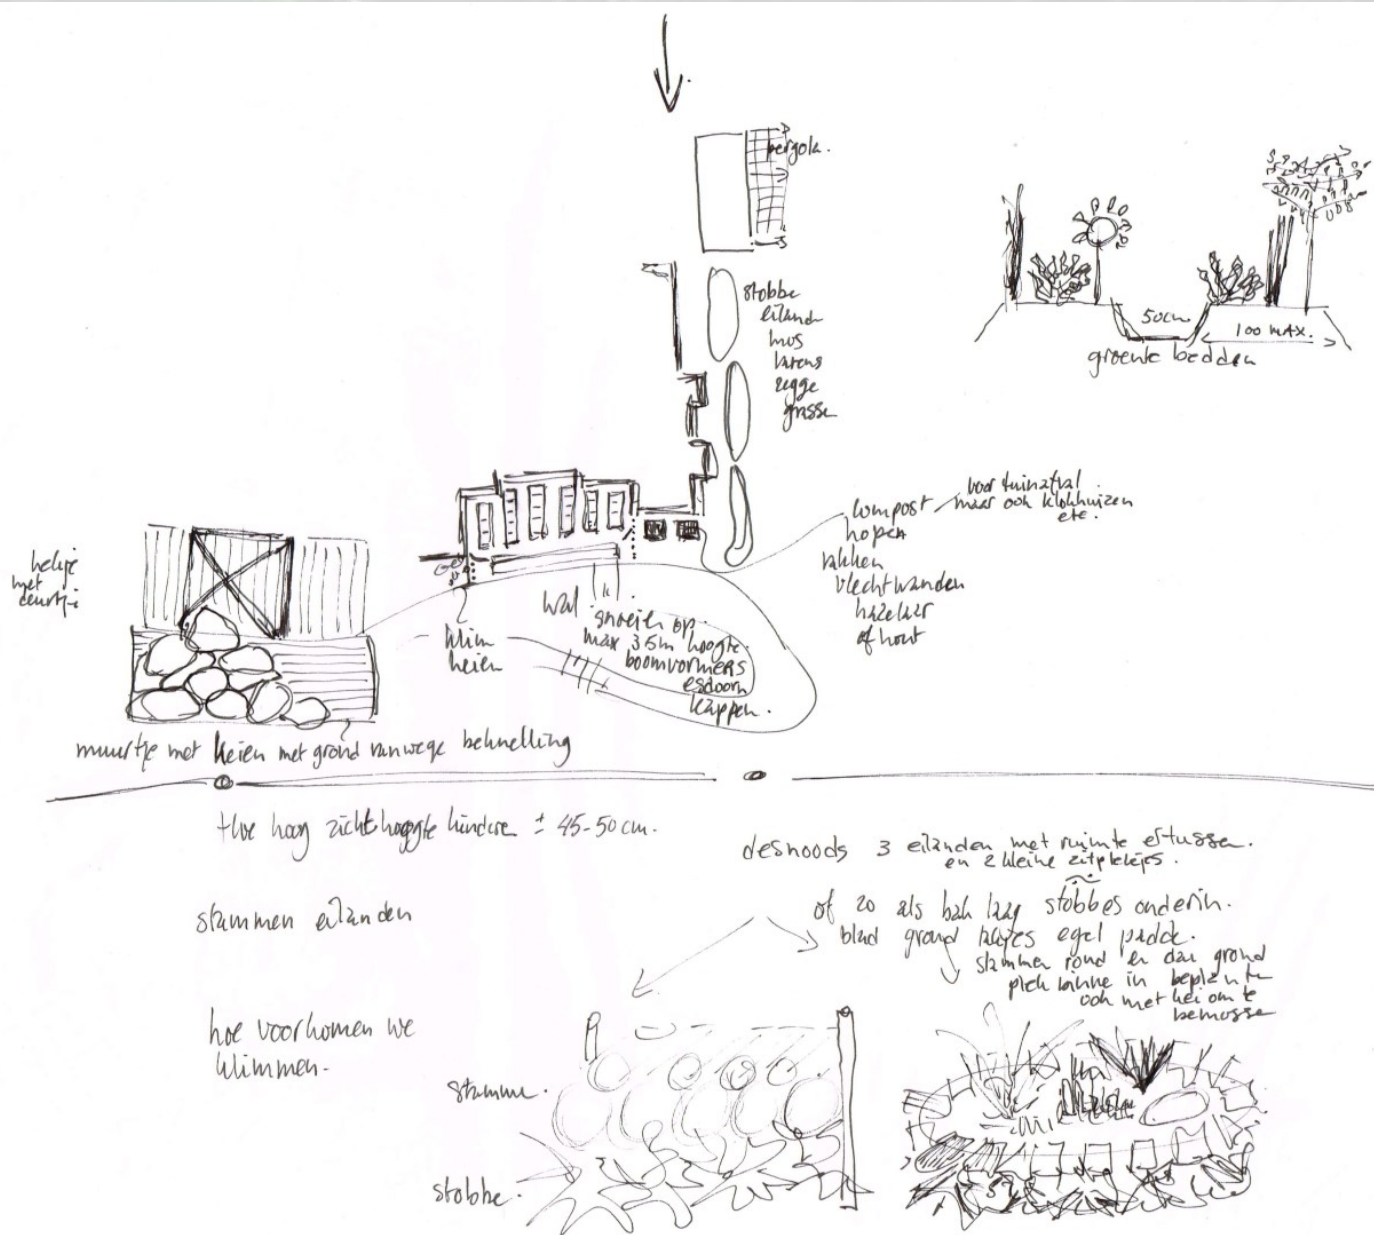 pergola.
stobbe
eiland
mos
varens
zegge
grasse
50cm.
100 max.
groente bedden
compost
hopen
vakken
vlechtwanden
hazelaar
of hout
voor tuinafval
maar ook klokhuizen
etc.
hekje
met
deurtje
klim
keien
wal
snoeien op
max 3.5m hoogte.
boomvormers
esdoorn
kappen.
muurtje met keien met grond vanwege beknelling
Hoe hoog zichthoogte kindere ± 45-50 cm.
stammen eilanden
hoe voorkomen we
klimmen.
desnoods 3 eilanden met ruimte ertussen.
en 2 kleine zitplekjes.
of zo als bak laag stobbes onderin.
blad grond takjes egel padde.
stammen rond en dan grond
plek binne in beplante
ook met kei om te
bemosse
stamme.
stobbe.